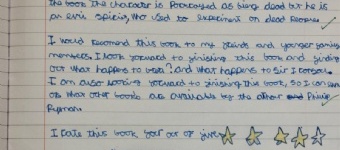 the book the character is portrayed as being dead but he is
an evil spirit, who used to experiment on dead people
I would recomend this book to my friends and younger family
members. I look forward to finishing this book and finding
out what happens to ? and what happens to Sir
I am also looking forward to finishing this book, so I can
on what other books are available by the other Philip
I rate this book four out of five